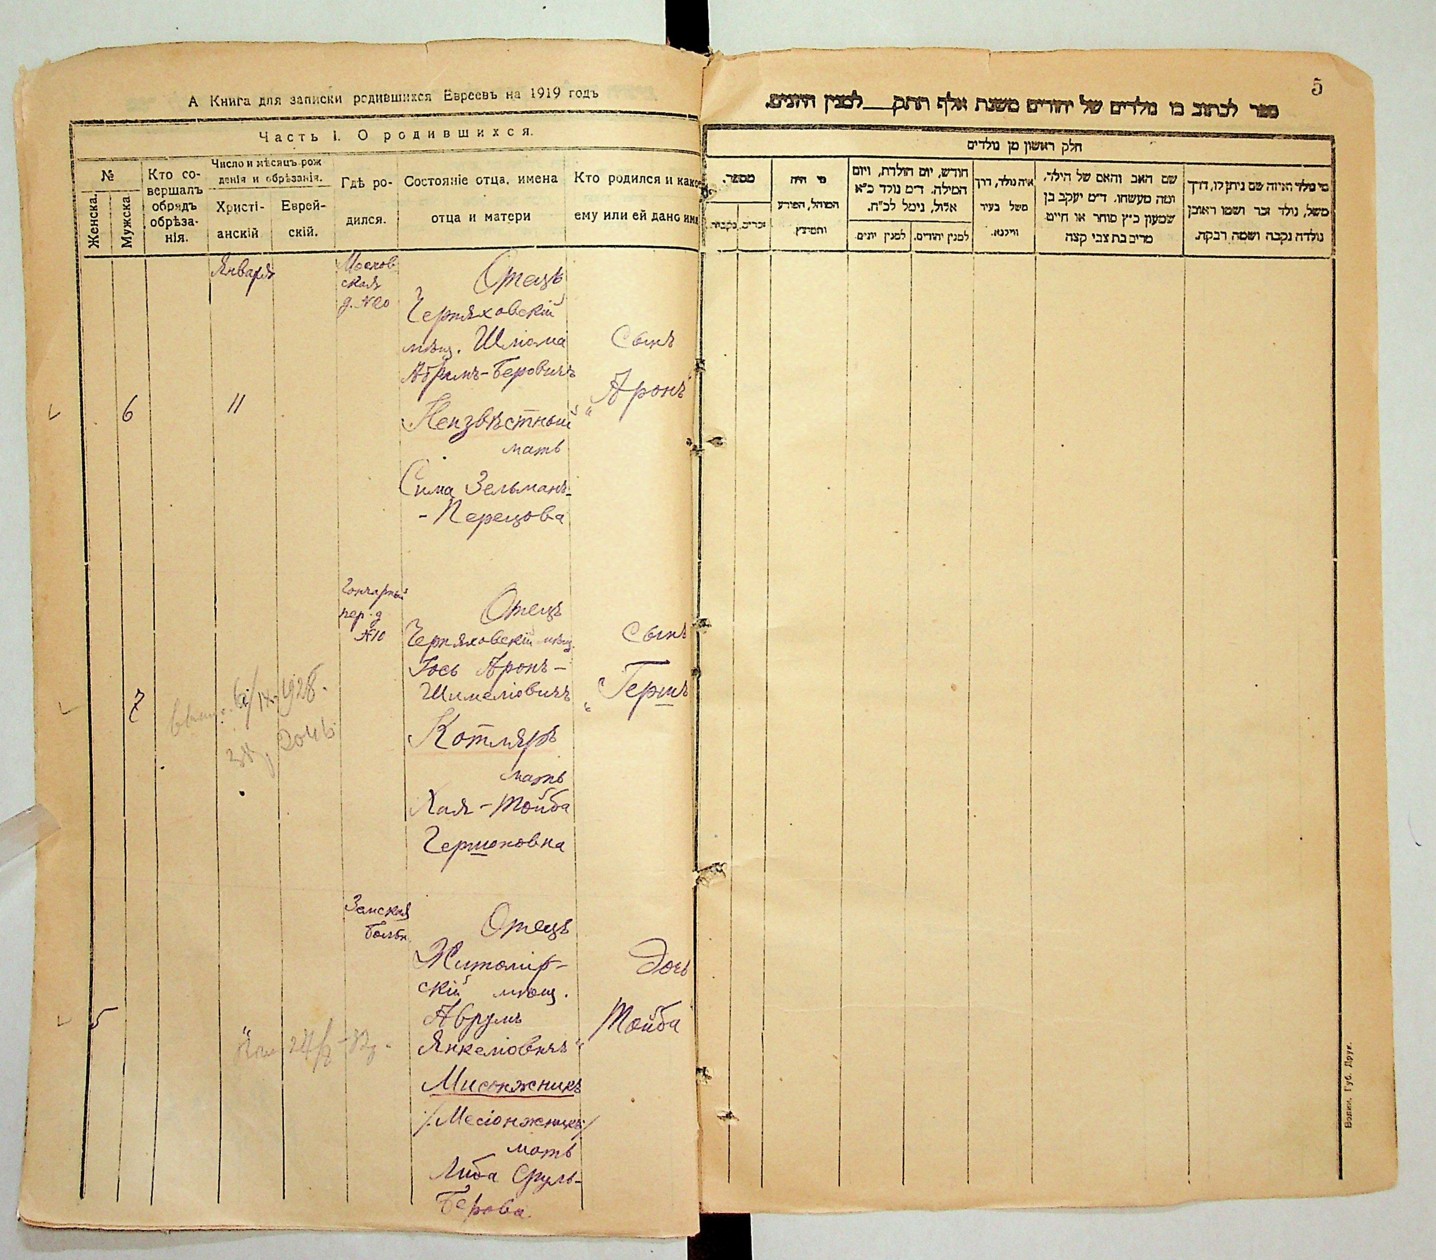 А Книга для записки родившихся Евреевъ на 1919 годъ
Часть I. О родившихся.
№
Женска.
Мужска
Кто со-
вершалъ
обрядъ
обрѣза-
нія.
Число и мѣсяцъ рож
денія и обрѣзанія.
Христі-
анскій
Еврей-
скій.
Гдѣ ро-
дился.
Состояніе отца, имена
отца и матери
Кто родился и како
ему или ей дано имя
6
Января
11
Москов
ская
д. №20
Отецъ
Черняховскій
мѣщ. Шмома
Абрамъ-Беровичъ
Неизвѣстный
мать
Сима Зельманъ-
-Перецова
Сынъ
"Аронъ"
7
Гончарный
пер. д
№10
Отецъ
Черняховскій мѣщ.
Гось Аронъ-
Шимеліовичъ
Котляръ
мать
Хая-Тойба
Гершоновна
Сынъ
"Гершъ
6/IX-1928.
5
Земская
больн.
Отецъ
Житомір-
скій мѣщ.
Аврумъ
Янкеліовичъ
Мисонжникъ
/Месіонжникъ/
мать
Либа Сруль-
Берова.
Дочь
"Тойба
5
ספר לכתוב בו נולדים של יהודים משנת אלף התק___למנין היונים.
חלק ראשון מן נולדים
מספר.
זכרים.
נקבות.
מי היה
המוהל, הפורע
והמוצץ.
חודש, יום הולדת, ויום
המילה. ד״מ נולד כ״א
אלול, נימל לכ״ח.
למנין יונים.
למנין יהודים.
איה נולד, דרך
משל בעיר
ווילנא.
שם האב והאם של הילד.
ומה מעשהו. ד״מ יעקב בן
שמעון כ״ץ סוחר או חייט
מרים בת צבי קצה
מי נולד ואיזה שם ניתן לו, דרך
משל, נולד זכר ושמו ראובן
נולדה נקבה ושמה רבקה.
Волын. Губ. Друк.